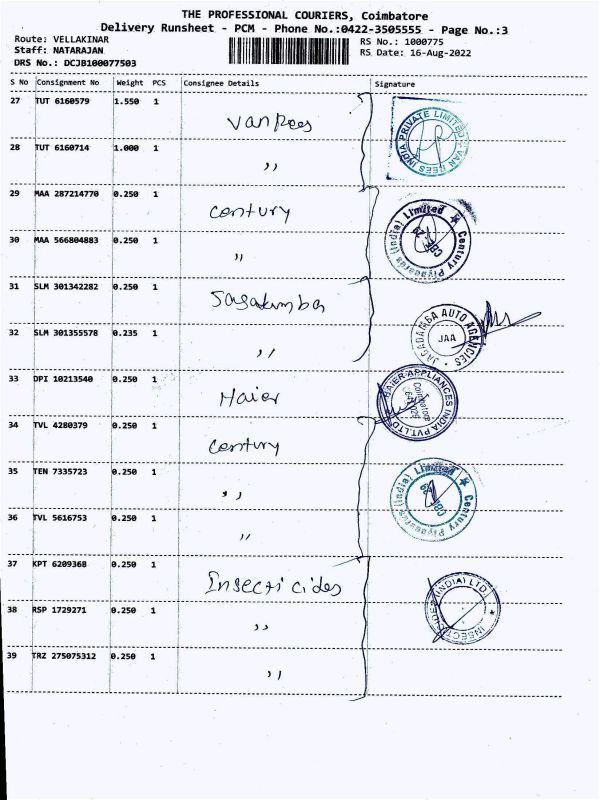 THE PROFESSIONAL COURIERS, Coimbatore
Delivery Runsheet - PCM - Phone No.:0422-3505555 - Page No.:3
Route: VELLAKINAR
Staff: NATARAJAN
DRS No.: DCJB100077503
RS No.: 1000775
RS Date: 16-Aug-2022
S No Consignment No Weight PCS Consignee Details Signature
27 TUT 6160579 1.550 1 Van Rees
VAN REES INDIA PRIVATE LIMITED
28 TUT 6160714 1.000 1 ,,
29 MAA 287214770 0.250 1 Century
Century Plyboards (India) Limited ★
CBE
30 MAA 566804883 0.250 1 ,,
31 SLM 301342282 0.250 1 Jagadamba
JAGADAMBA AUTO AGENCIES
JAA
32 SLM 301355578 0.235 1 ,,
33 DPI 10213540 0.250 1 Haier
HAIER APPLIANCES INDIA PVT.LTD
Coimbatore
34 TVL 4280379 0.250 1 Century
Century Plyboards (India) Limited ★
CBE
35 TEN 7335723 0.250 1 ,,
36 TVL 5616753 0.250 1 ,,
37 KPT 6209368 0.250 1 Insecticides
INSECTICIDES (INDIA) LTD. ★
38 RSP 1729271 0.250 1 ,,
39 TRZ 275075312 0.250 1 ,,